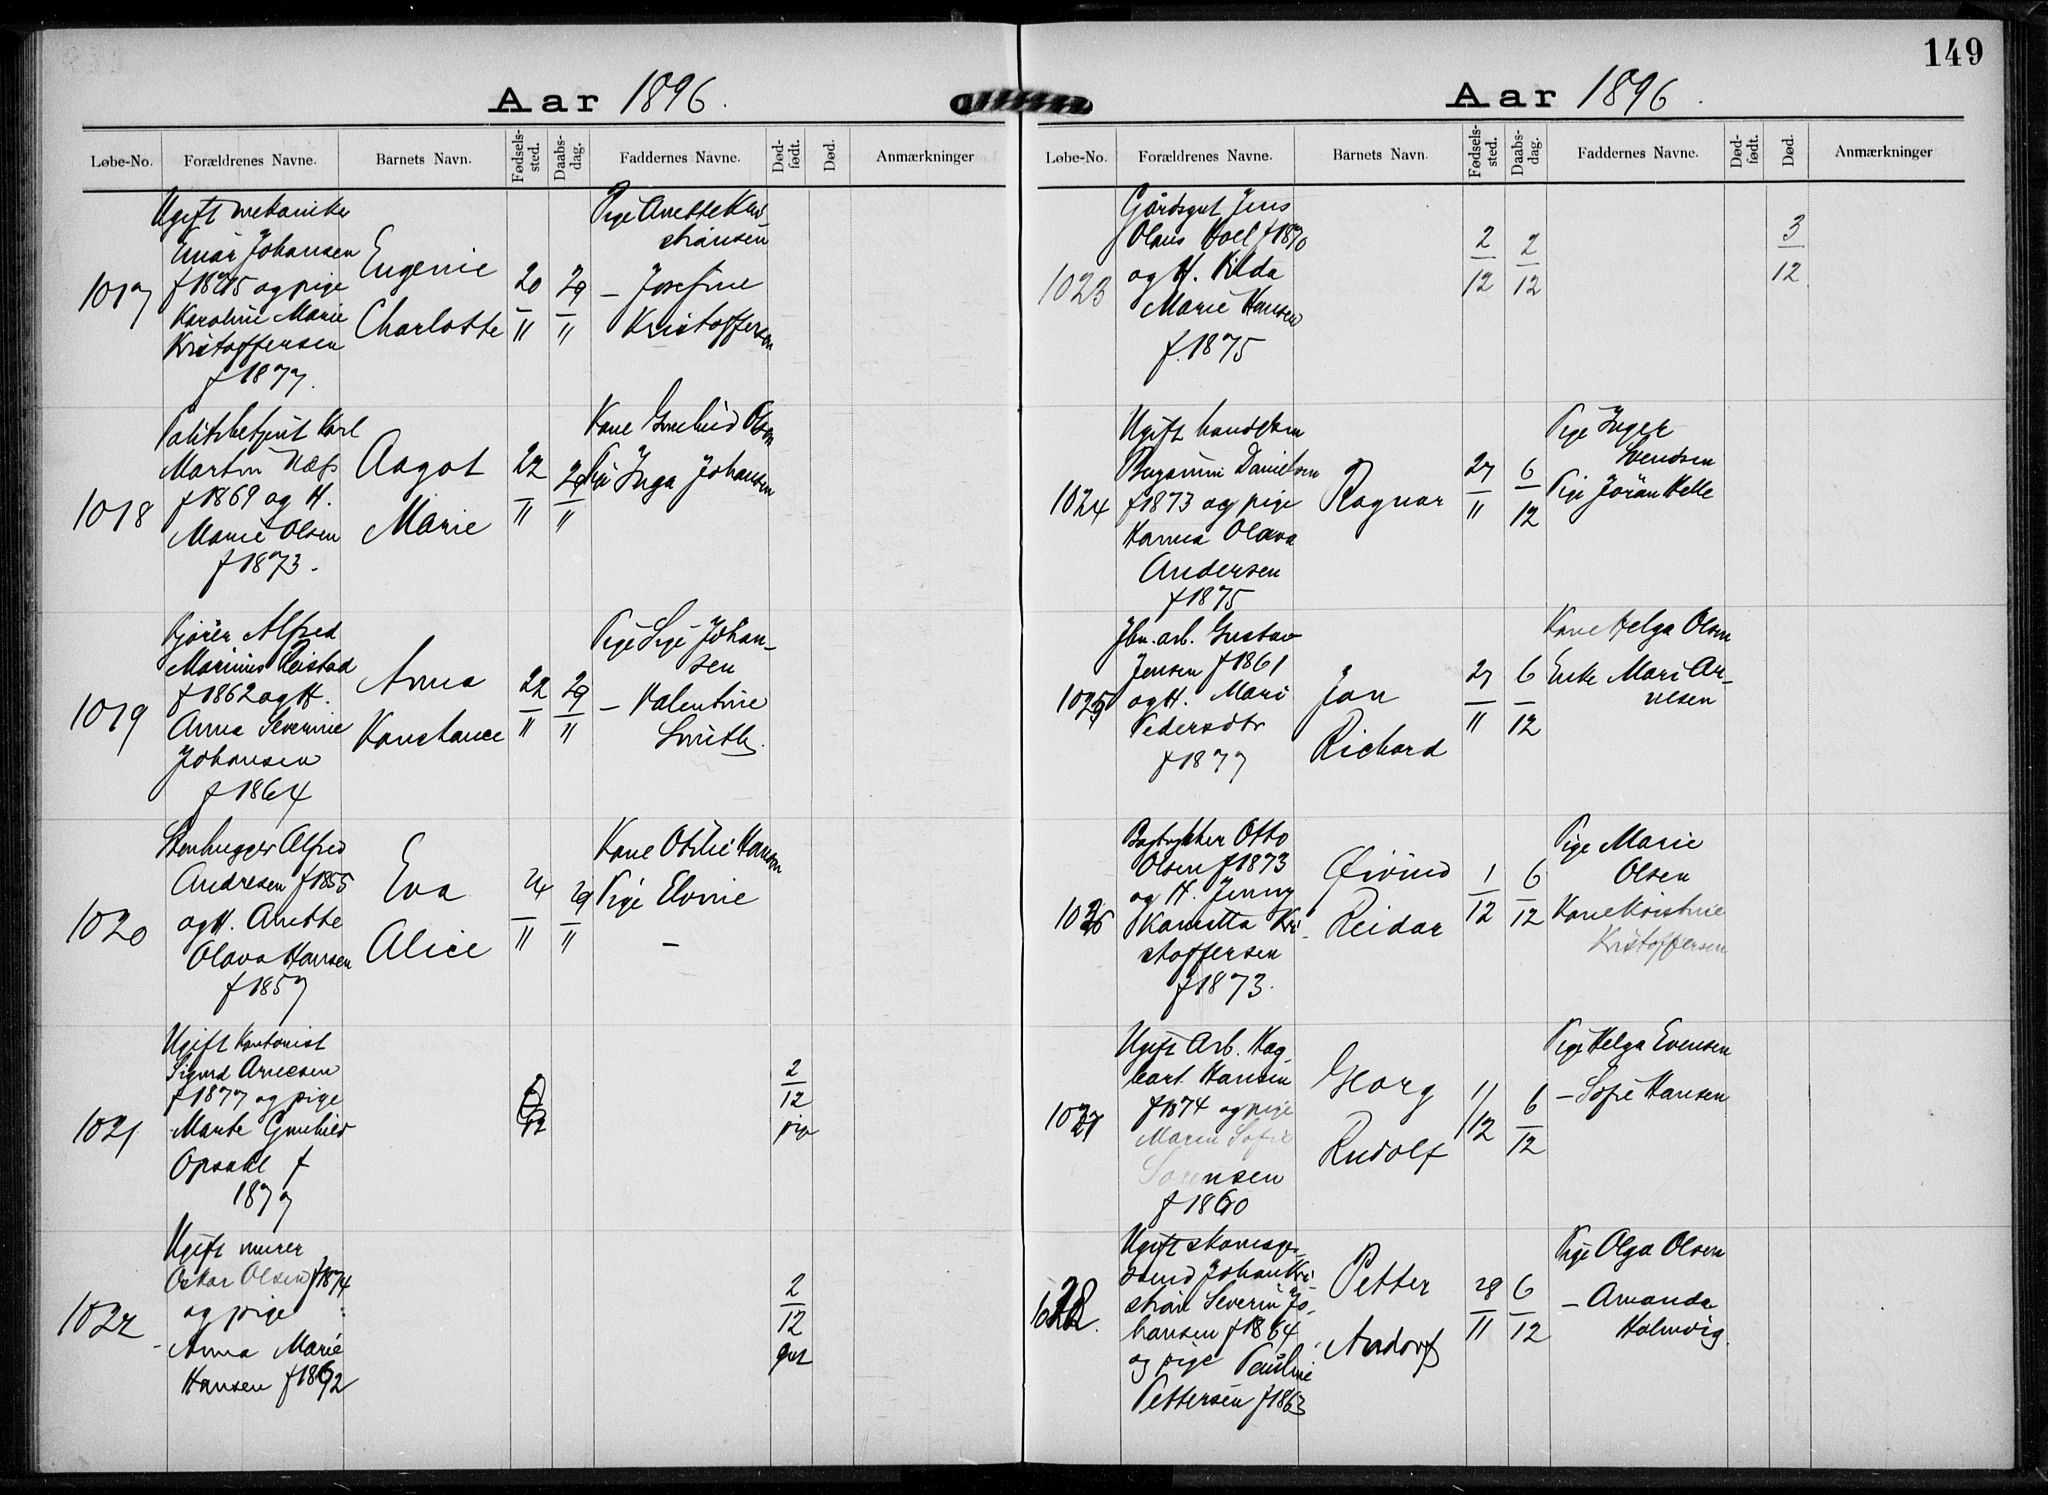 149
Aar 1896.
Løbe-No. Forældrenes Navne. Barnets Navn. Fødsels-sted. Daabs-dag. Faddernes Navne. Død-født. Død. Anmærkninger
1017
Ugift mekaniker
Einar Johansen
f 1875 og pige
Karoline Marie
Kristoffersen
f 1877.
Eugenie
Charlotte
20/11
29/11
Pige Anette Kri
stiansen
— Josefine
Kristoffersen
1018
Politibetjent Karl
Martin Næss
f 1869 og H.
Marie Olsen
f 1873.
Aagot
Marie
22/11
29/11
Kone Gunhild Olsen
Pige Inga Johansen
1019
Kjører Alfred
Marinius Reistad
f 1862 og H.
Anna Severine
Johansen
f 1864
Anna
Konstance
22/11
29/11
Pige Sigi Johan-
sen
— Valentine
Smith.
1020
Stenhugger Alfred
Andresen f 1855
og H. Anette
Olava Hansen
f 1857
Eva
Alice
24/11
29/11
Kone Otilie Hansen
Pige Elvine —
1021
Ugift Kontorist
Sigurd Arnesen
f 1877 og pige
Marte Gunhild
Opsahl f
1877
2/12
pig
1022
Ugift murer
Oskar Olsen f 1874
og pige
Anna Marie
Hansen f 1872
2/12
gut
Aar 1896.
Løbe-No. Forældrenes Navne. Barnets Navn. Fødsels-sted. Daabs-dag. Faddernes Navne. Død-født. Død. Anmærkninger
1023
Gårdsgut Jens
Olaus Hoel f 1870
og H. Hilda
Marie Hansen
f. 1875
2/12
2/12
3/12
1024
Ugift
Danielsen
f 1873 og pige
Hanna Olava
Andersen
f 1875
Ragnar
27/11
6/12
Pige Inger
Svendsen
Pige Jøran Helle
1025
Jbn. arb. Gustav
Jensen f 1861
og H. Mari
Pedersdtr
f 1877
Jon
Richard
27/11
6/12
Kone Helga Olsen
Enke Mari Ar-
nesen
1026
Bogtrykker Otto
Olsen f 1873
og H. Jenny
Kri-
stoffersen
f 1873.
Øivind
Reidar
1/12
6/12
Pige Marie
Olsen
Kone Kristine
Kristoffersen
1027
Ugift Arb. Hag-
bart Hansen
f 1874 og pige
Maren Sofie
Sørensen
f 1860
Georg
Rudolf
1/12
6/12
Pige Helga Evensen
— Sofie Hansen
1028.
Ugift skomager-
svend Johan Kri-
stian Severin Jo-
hansen f 1864
og pige Pauline
Pettersen f 1863
Petter
Andorf
28/11
6/12
Pige Olga Olsen
— Amanda
Holmvig.